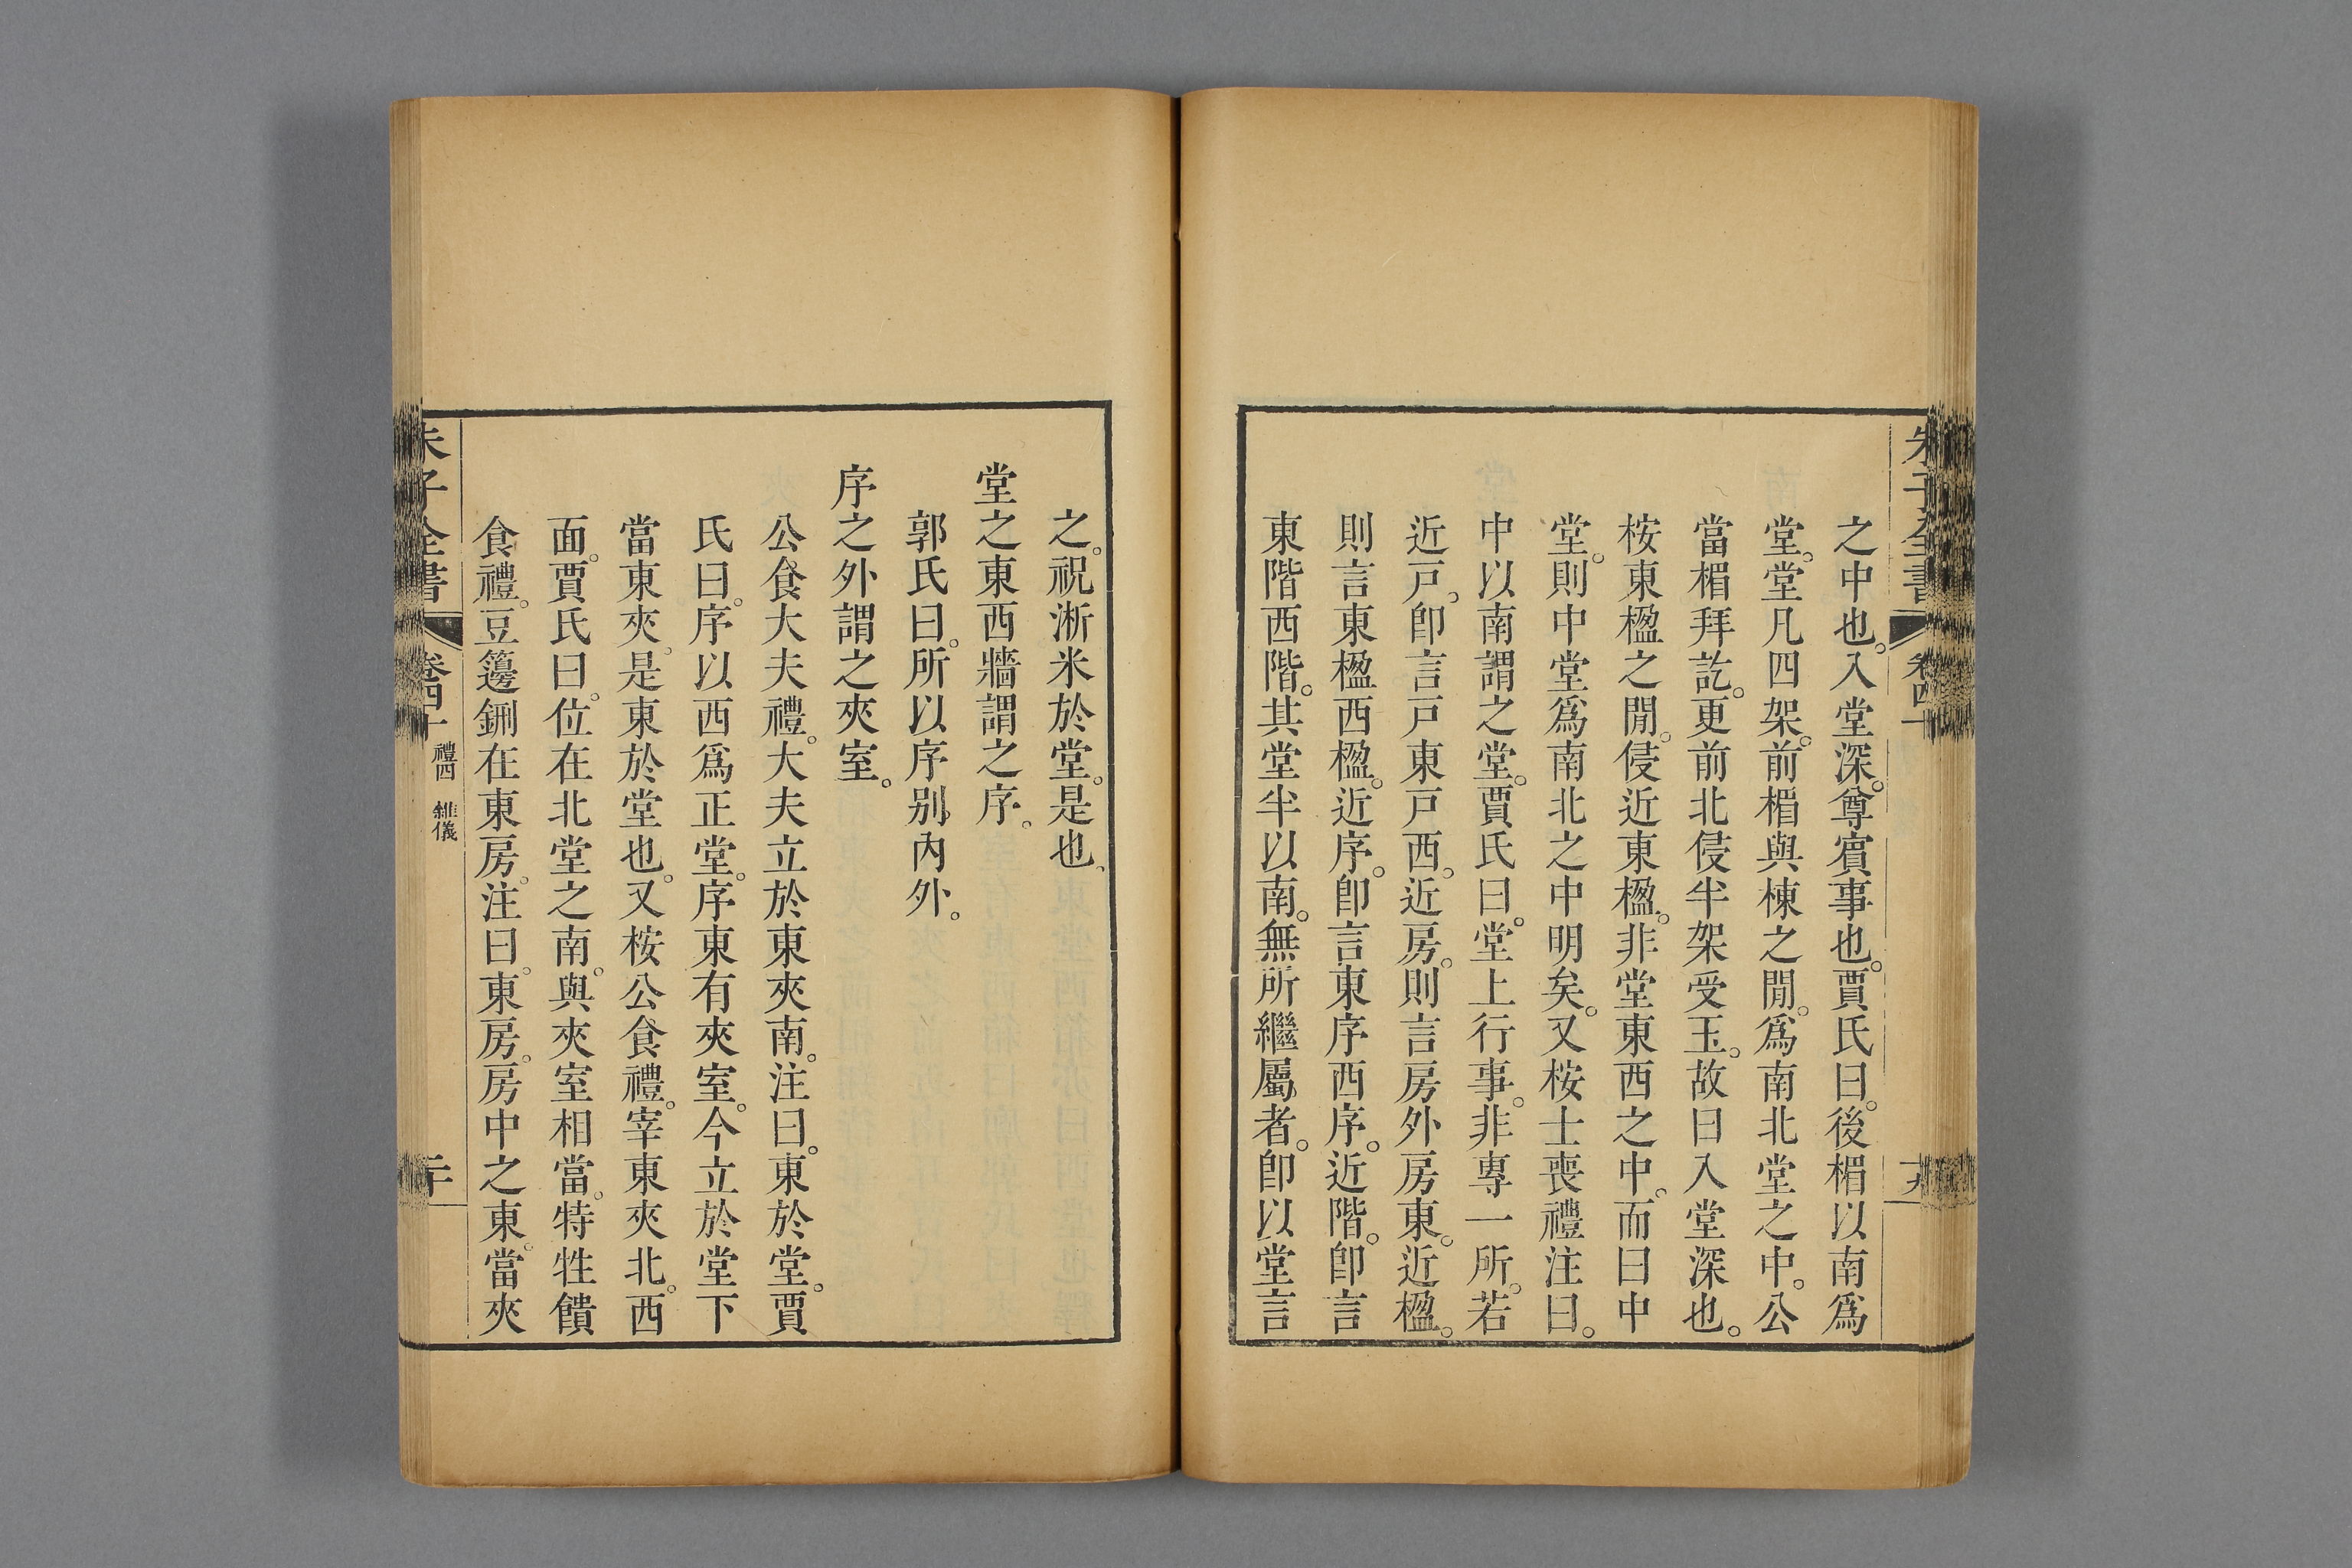 朱子全書 卷四十 十九
之中也。入堂深。尊賓事也。賈氏曰。後楣以南爲
堂。堂凡四架。前楣與棟之閒。爲南北堂之中。公
當楣拜訖。更前北侵半架受玉。故曰入堂深也。
桉東楹之閒。侵近東楹。非堂東西之中。而曰中
堂。則中堂爲南北之中明矣。又桉士喪禮注曰。
中以南謂之堂。賈氏曰。堂上行事。非專一所。若
近戸。卽言戸東戸西。近房。則言房外房東。近楹。
則言東楹西楹。近序。卽言東序西序。近階。卽言
東階西階。其堂半以南。無所繼屬者。卽以堂言
之。祝淅米於堂。是也、
堂之東西牆謂之序。
郭氏曰。所以序別內外。
序之外謂之夾室。
公食大夫禮。大夫立於東夾南。注曰。東於堂。賈
氏曰。序以西爲正堂。序東有夾室。今立於堂下
當東夾。是東於堂也。又桉公食禮。宰東夾北。西
面。賈氏曰。位在北堂之南。與夾室相當。特牲饋
食禮。豆籩鉶在東房。注曰。東房。房中之東。當夾
朱子全書 卷四十 禮四 雜儀 二十